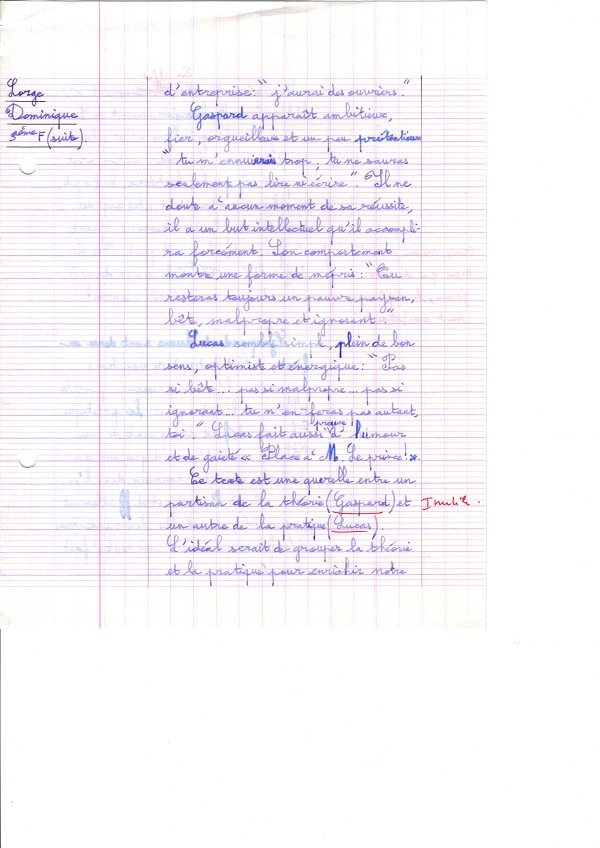 Lorge
Dominique
3ème F (suite).
d'entreprise: "j'aurai des ouvriers."
Gaspard apparaît ambitieux,
fier, orgueilleux et un peu prétentieux
"tu m'ennuierais trop, tu ne sauras
seulement pas lire ni écrire". Il ne
doute à aucun moment de sa réussite,
il a un but intellectuel qu'il accompli-
ra forcément. Son comportement
montre une forme de mépris: "Tu
resteras toujours un pauvre paysan,
bête, malpropre et ignorant."
Lucas semble simple, plein de bon
sens, optimiste et énergique: "Pas
si bête... pas si malpropre... pas si
ignorant... tu n'en feras pas autant,
toi." Lucas fait aussi preuve d'humour
et de gaieté « Place à M. Le prince! ».
Ce texte est une querelle entre un
partisan de la théorie (Gaspard) et Inutile.
un autre de la pratique (Lucas).
L'idéal serait de grouper la théorie
et la pratique pour enrichir notre